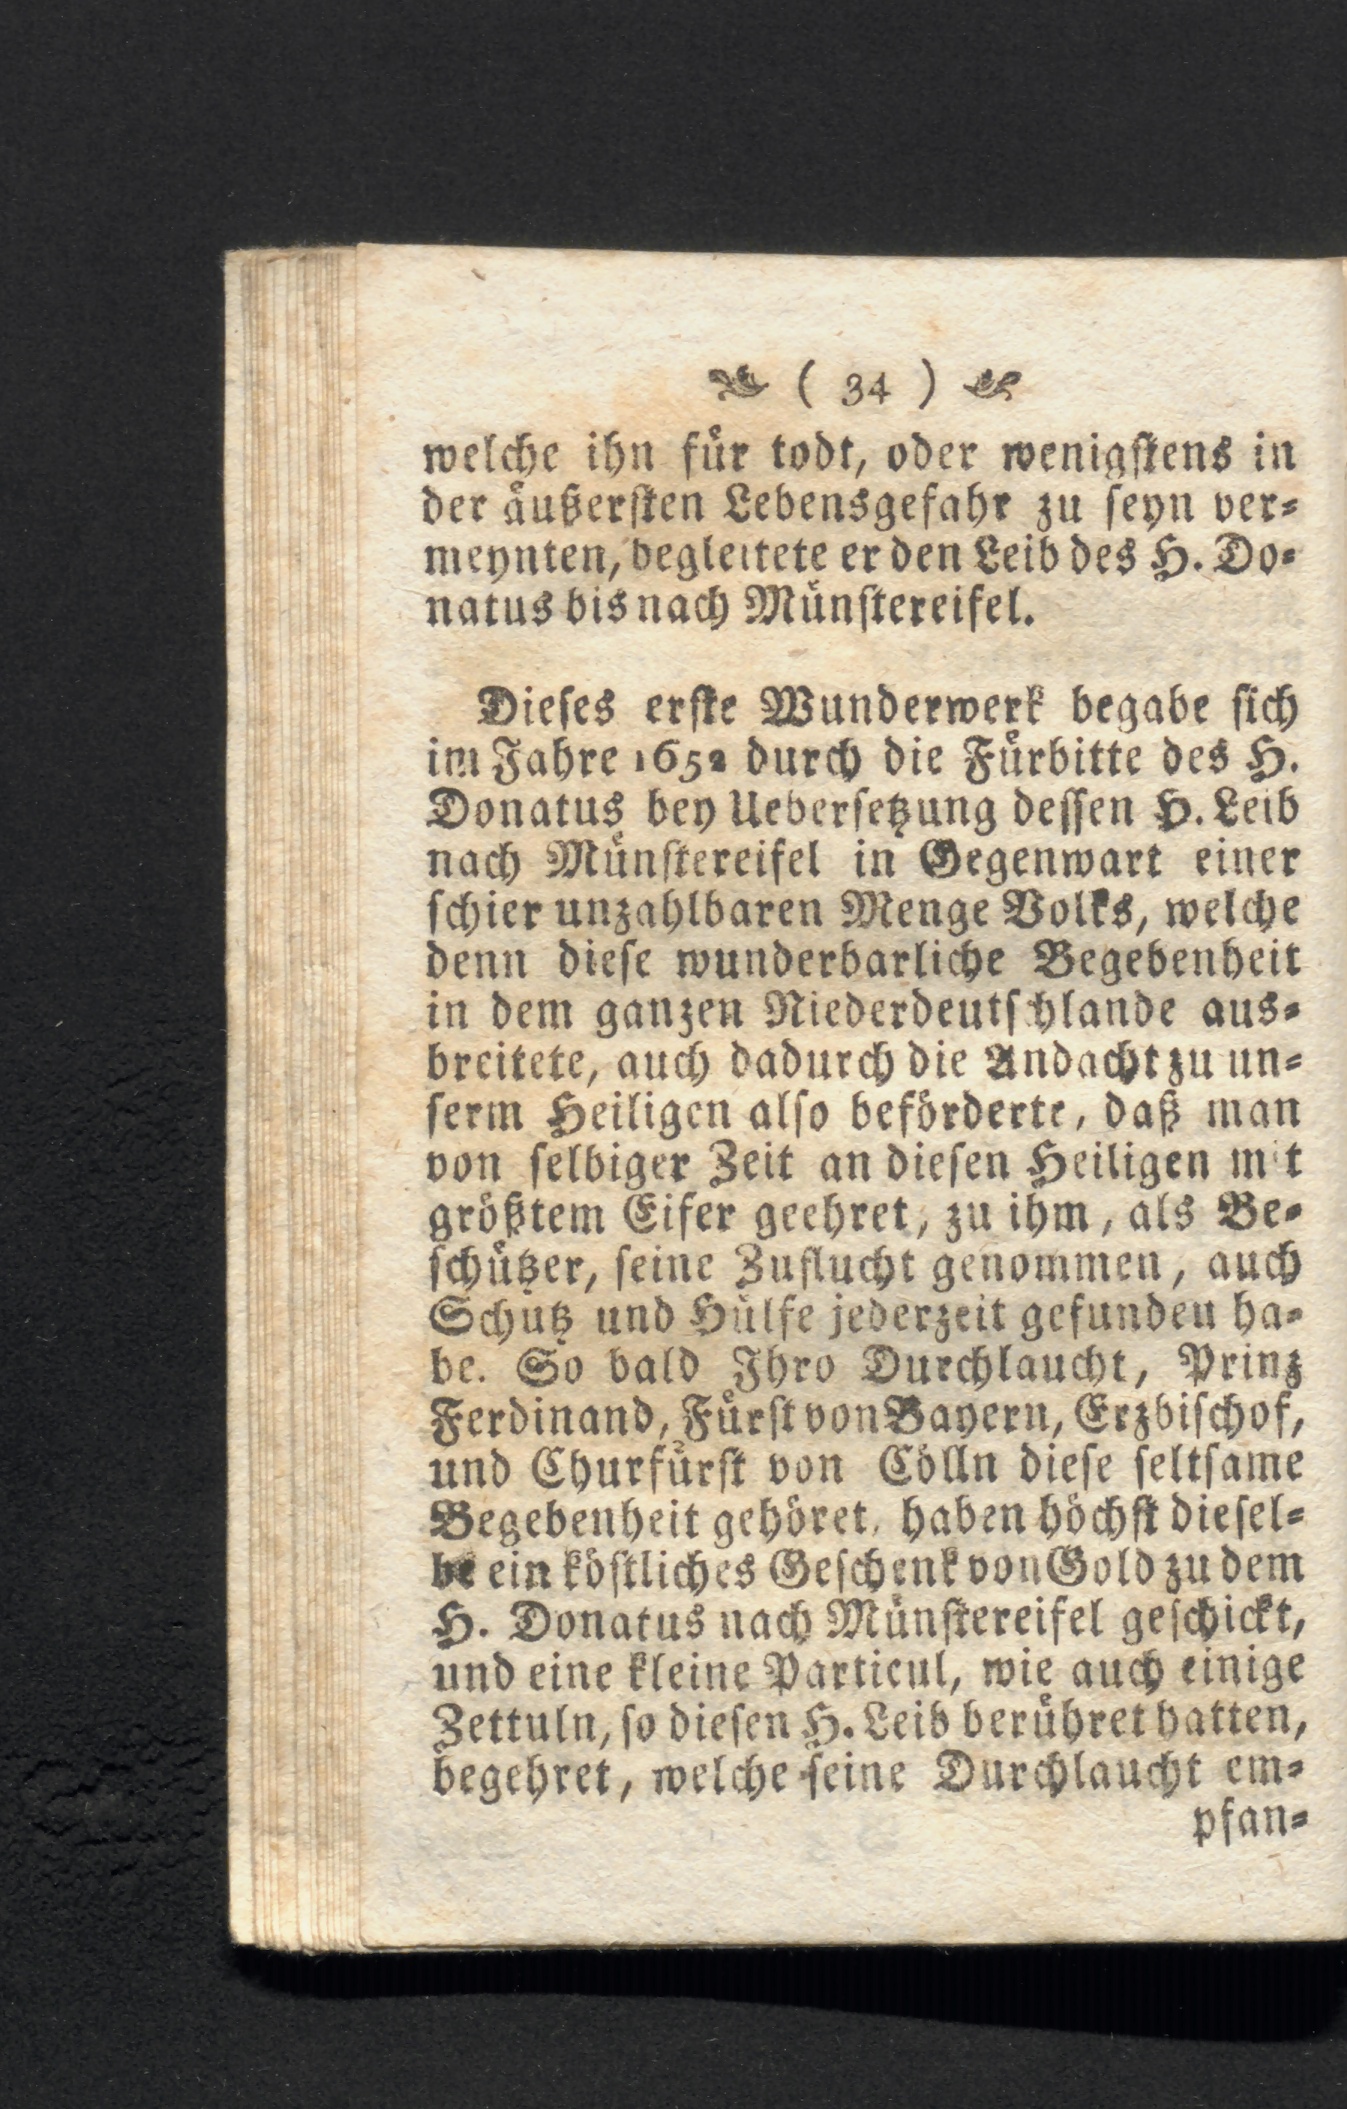 ( 34 )
welche ihn für todt, oder wenigstens in
der äußersten Lebensgefahr zu seyn ver-
meynten, begleitete er den Leib des H. Do-
natus bis nach Münstereifel.
Dieses erste Wunderwerk begabe sich
im Jahre 1652 durch die Fürbitte des H.
Donatus bey Uebersetzung dessen H. Leib
nach Münstereifel in Gegenwart einer
schier unzahlbaren Menge Volks, welche
denn diese wunderbarliche Begebenheit
in dem ganzen Niederdeutschlande aus-
breitete, auch dadurch die Andacht zu un-
serm Heiligen also beförderte, daß man
von selbiger Zeit an diesen Heiligen mit
größtem Eifer geehret, zu ihm, als Be-
schützer, seine Zuflucht genommen, auch
Schutz und Hülfe jederzeit gefunden ha-
be. So bald Ihro Durchlaucht, Prinz
Ferdinand, Fürst von Bayern, Erzbischof,
und Churfürst von Cölln diese seltsame
Begebenheit gehöret, haben höchst diesel-
be ein köstliches Geschenk von Gold zu dem
H. Donatus nach Münstereifel geschickt,
und eine kleine Particul, wie auch einige
Zettuln, so diesen H. Leib berühret hatten,
begehret, welche seine Durchlaucht em-
pfan-